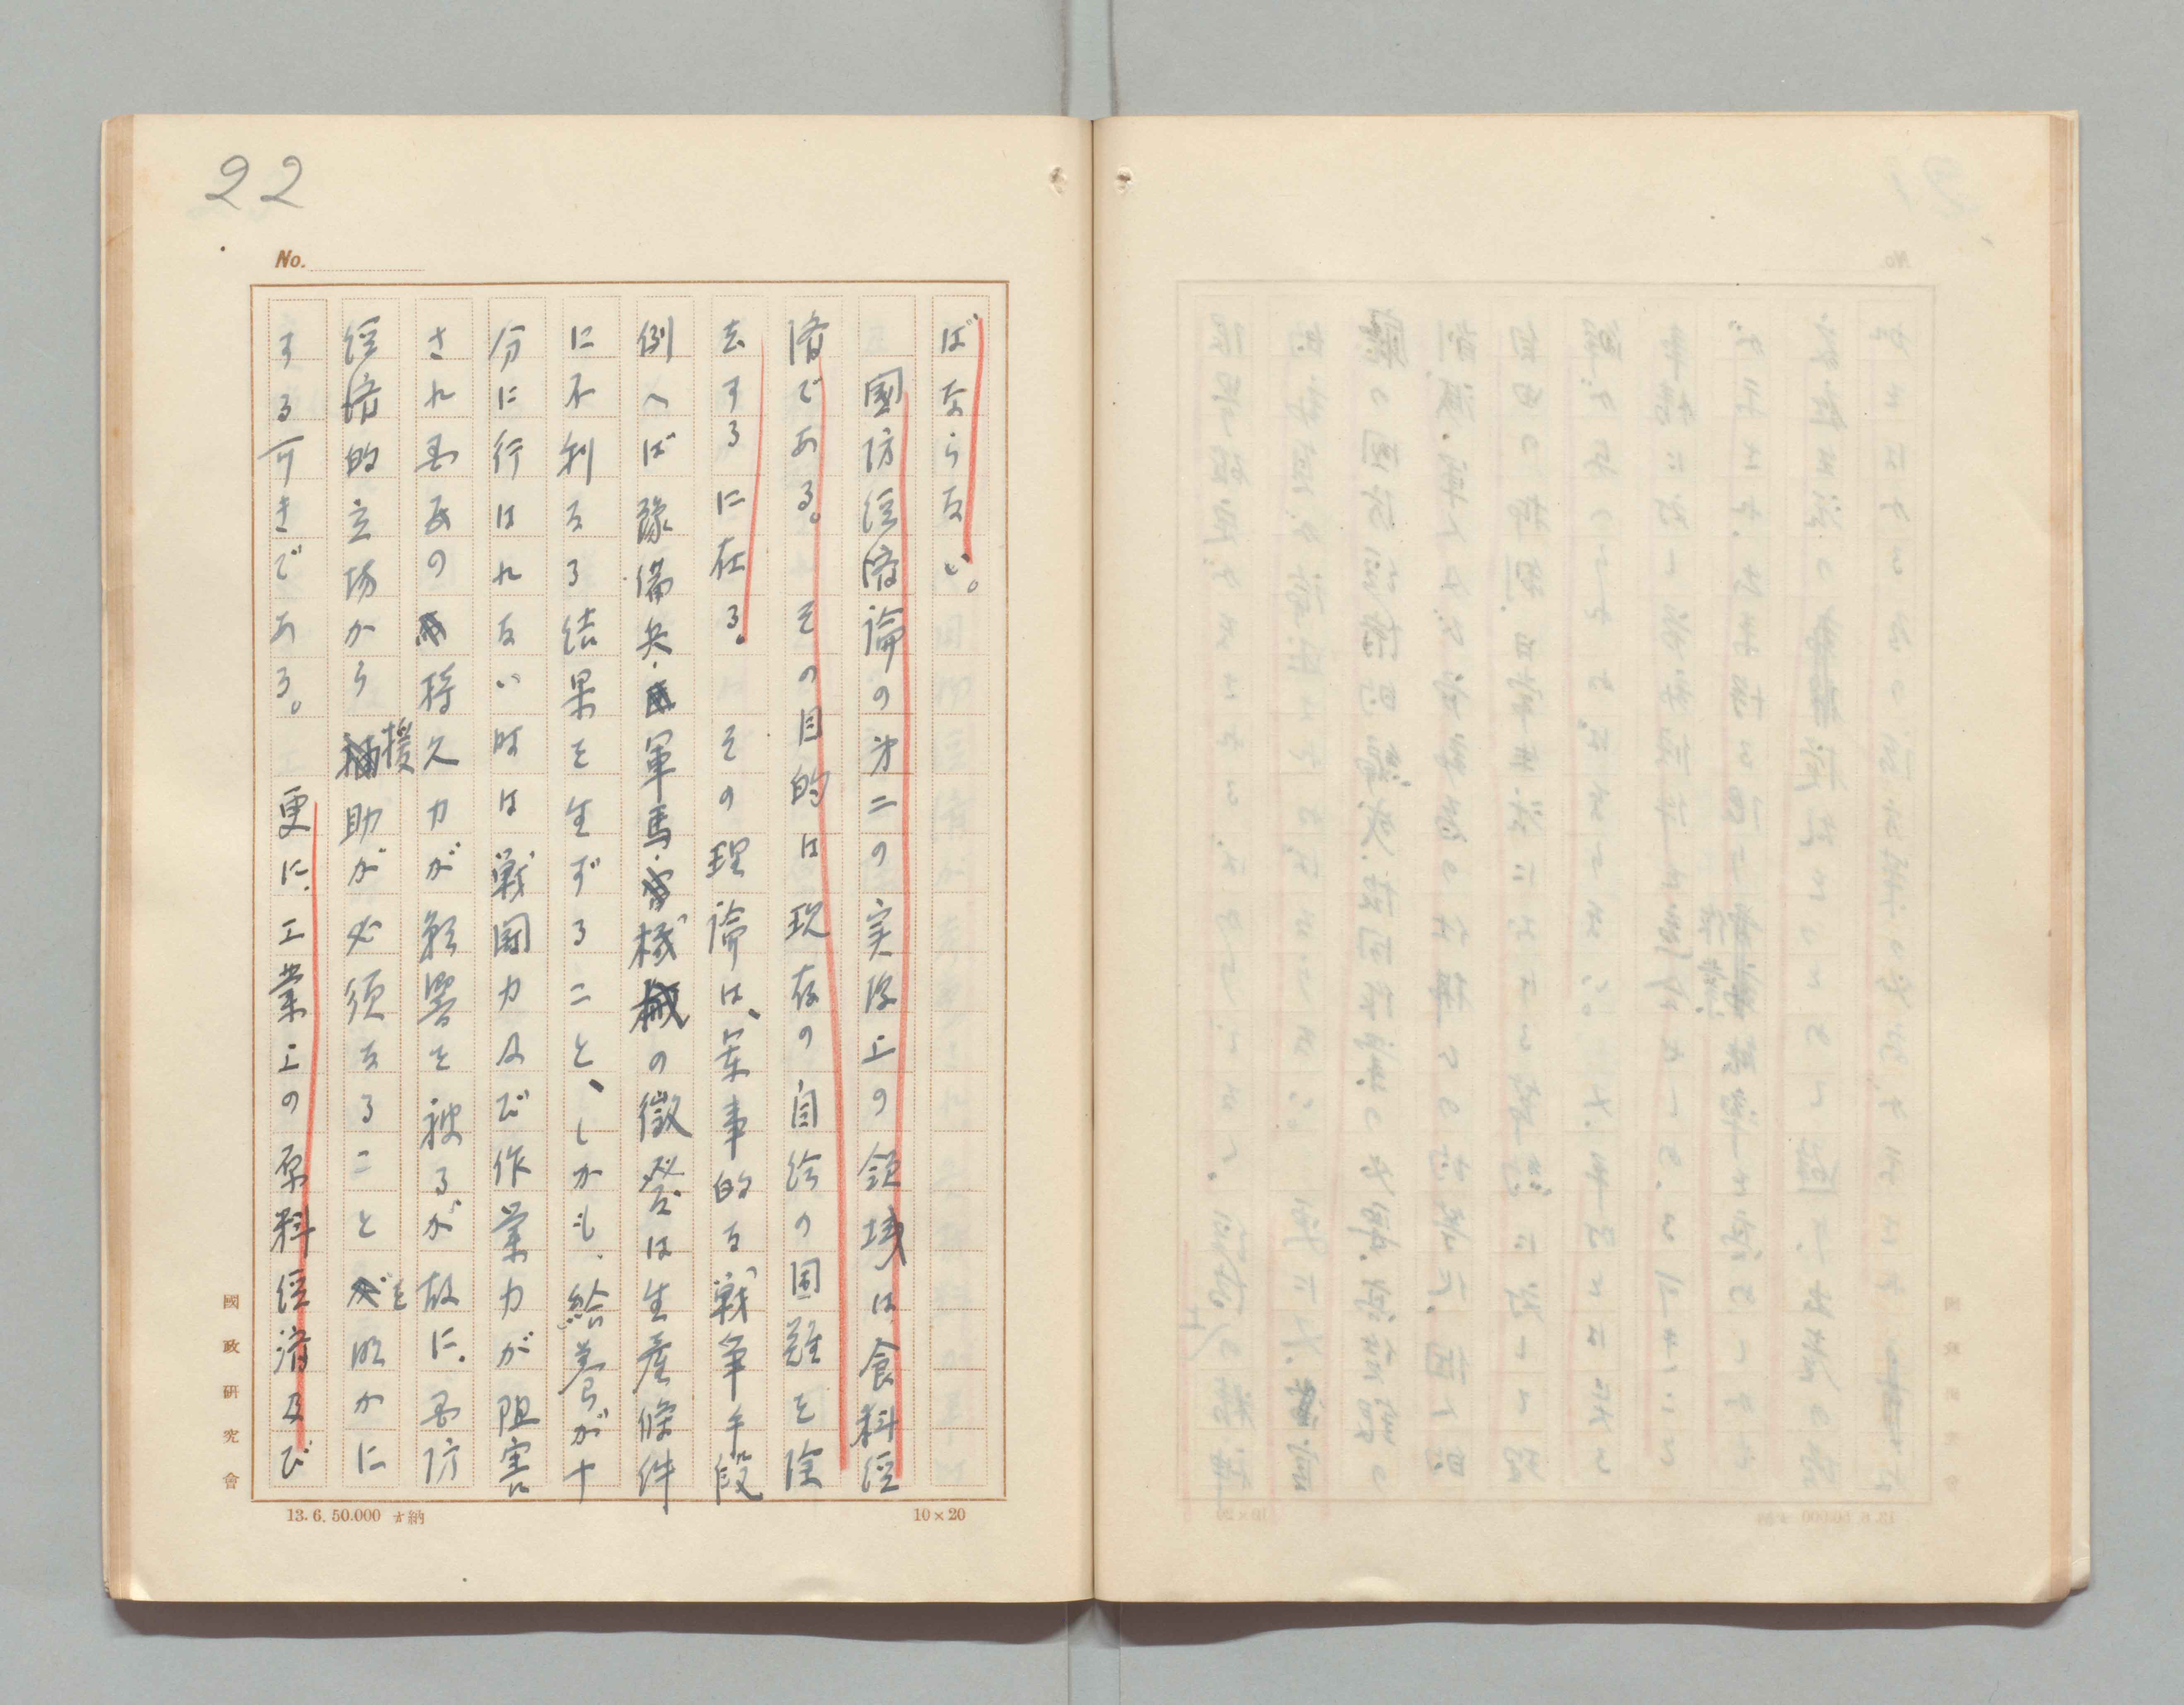 22
No.
ばならない。
國防経済論の第二の実際上の領域は食料経
済である。その目的は現存の自給の困難を除
去するに在る。その理論は、軍事的な戦争手段
例へば豫備兵・軍馬・機械の徴発は生産條件
に不利なる結果を生ずること、しかも、給養が十
分に行はれない時は戦闘力及び作業力が阻害
され、国民の持久力が影響を被るが故に、国防
経済的立場から援助が必須なることを明かに
する可きである。更に、工業上の原料経済及び
國政研究會
13. 6. 50.000 納
10×20